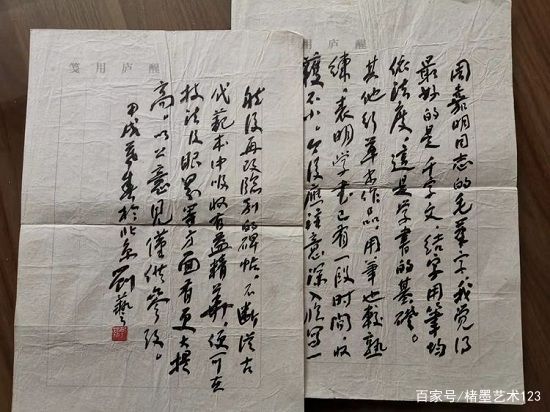 醒庐用笺
周嘉明同志的毛笔字,我觉得
最好的是千字文,结字用笔均
依法度,这是学书的基础。
其他行草书作品,用笔也较熟
练,表明学书已有一段时间,收
获不小。今后应注意深入临写一
醒庐用笺
然后再改临别的碑帖,不断从古
代范本中吸收有益精华,便可在
技法及眼界等方面有更大提
高。以上意见仅供参考。
甲戌春于北京 劉藝
百家号/楮墨艺术123